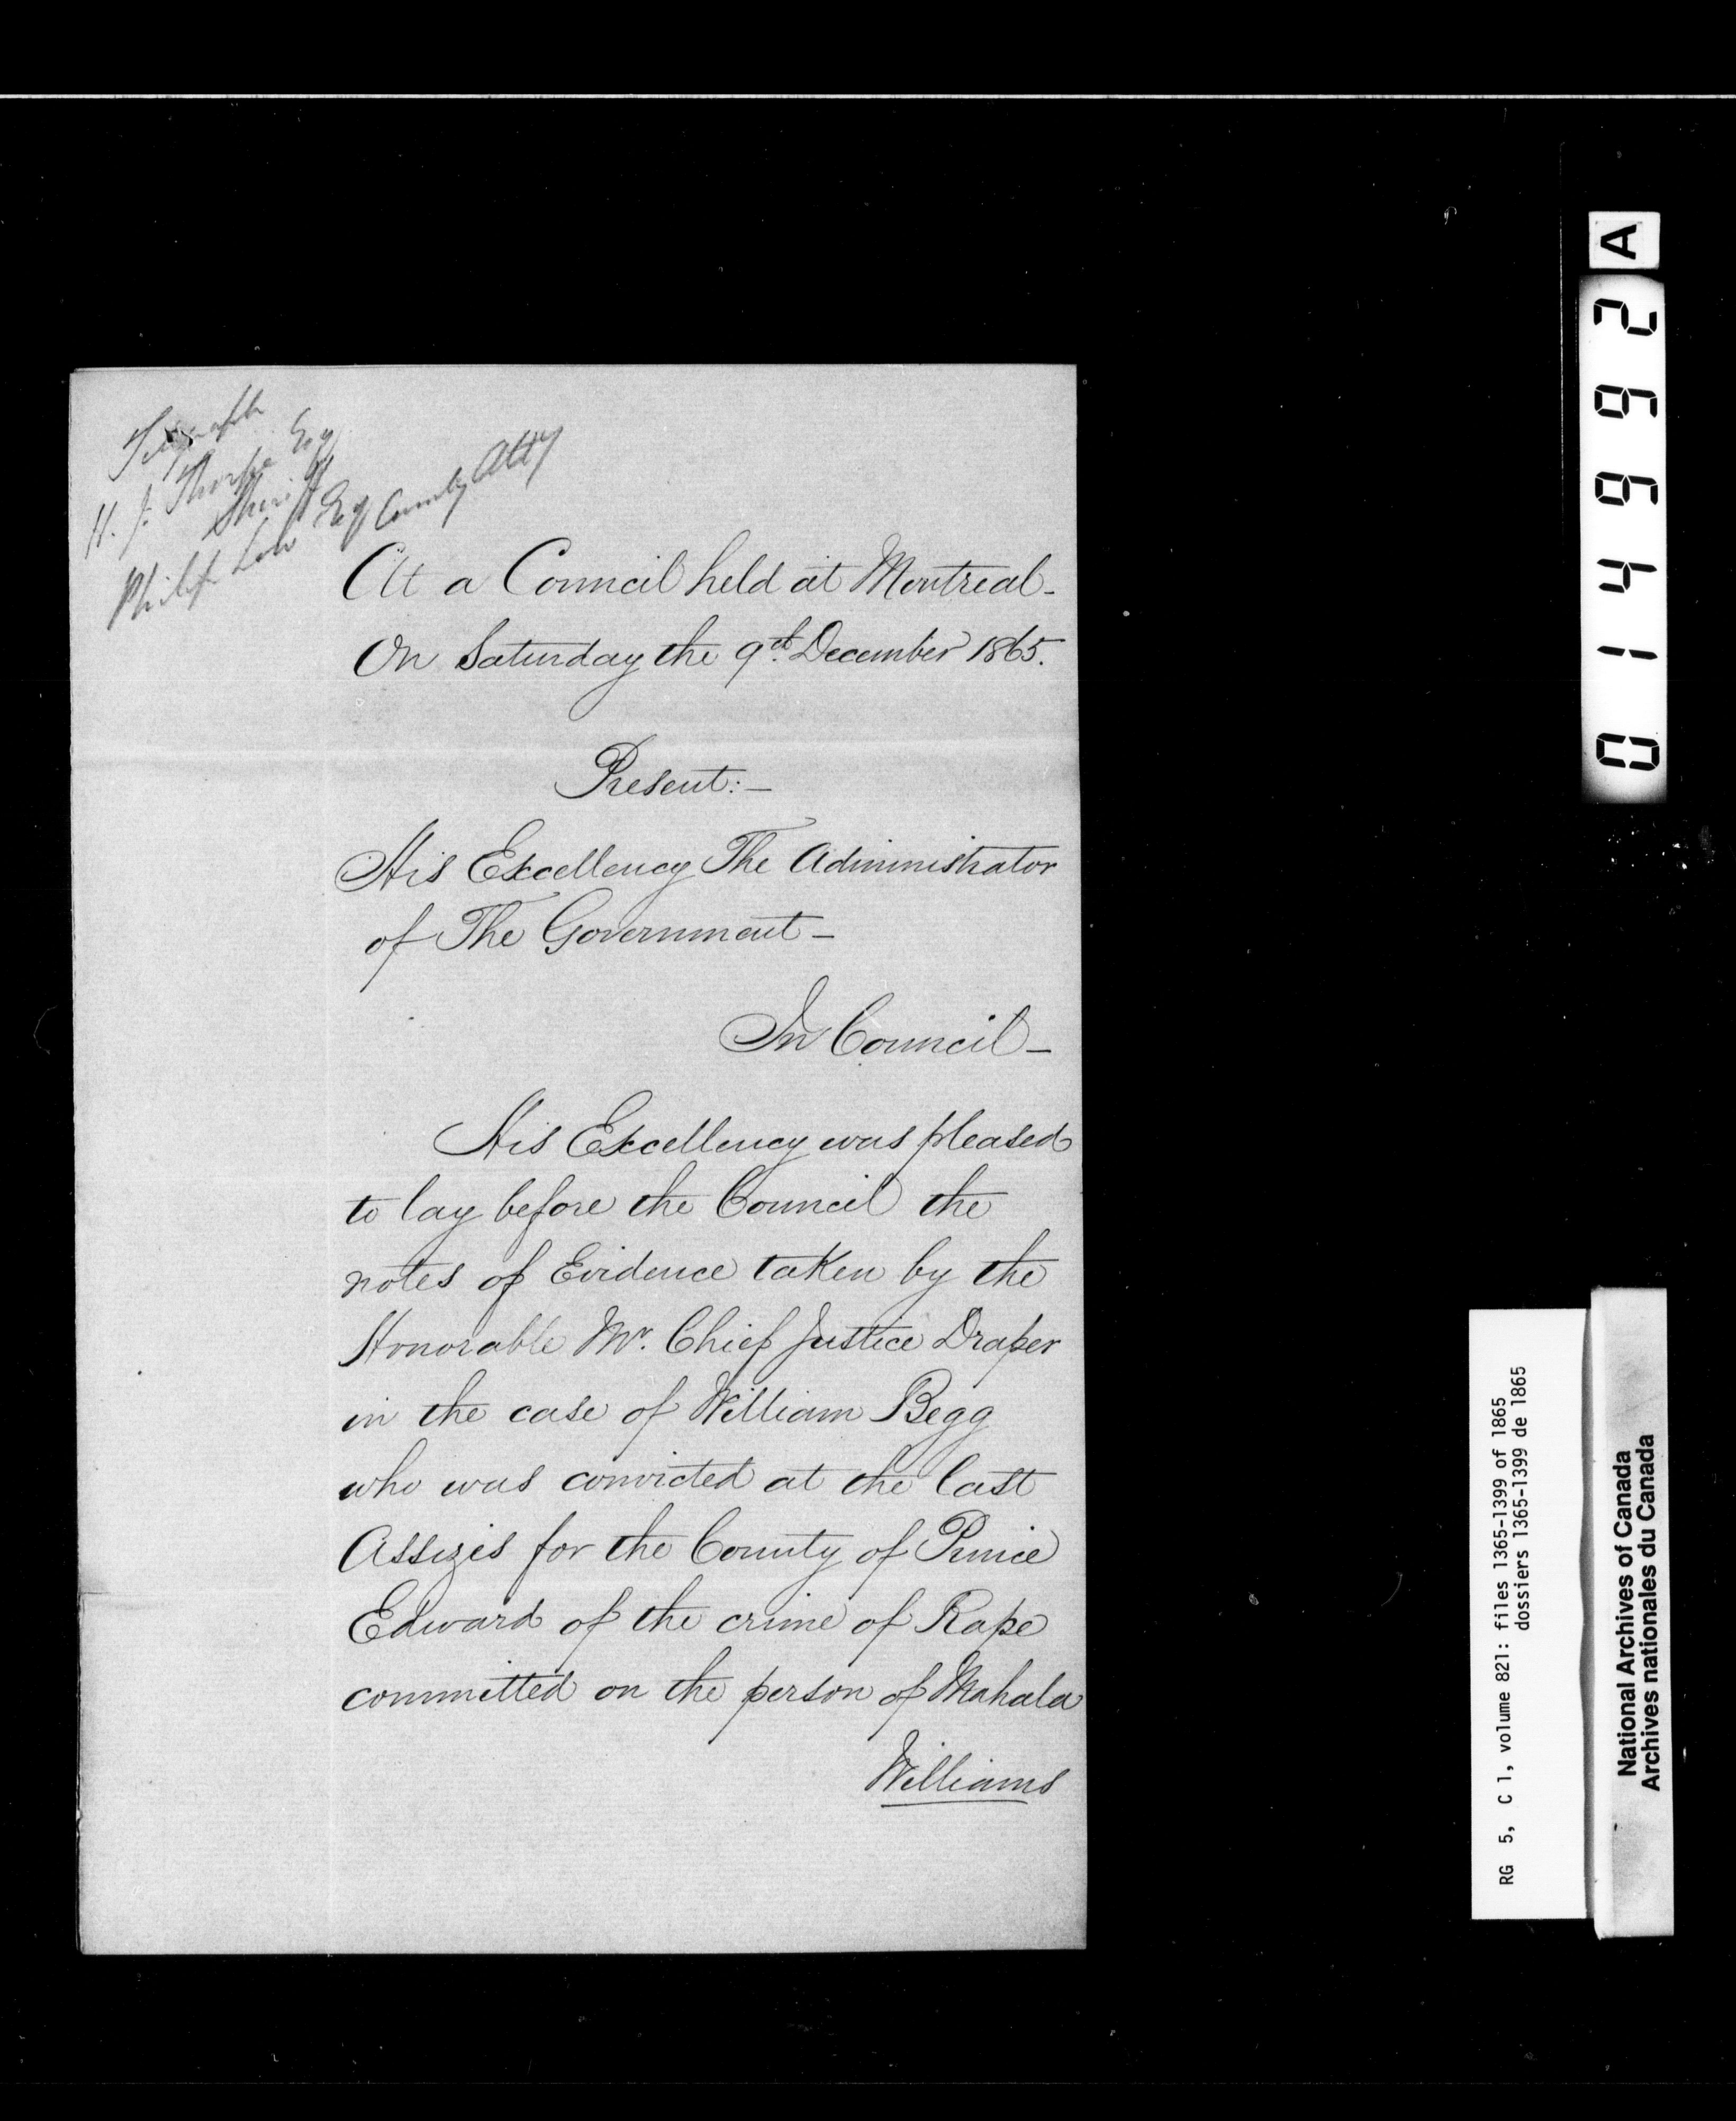 Telegraph
H. J. Thorpe Esq
Sheriff
Philip Low Esq County Atty
At a Council held at Montreal -
On Saturday the 9th. December 1865.
Present: -
His Excellency The Administrator
of The Government -
In Council -
His Excellency was pleased
to lay before the Council the
notes of Evidence taken by the
Honorable Mr. Chief Justice Draper
in the case of William Begg
who was convicted at the last
Assizes for the County of Prince
Edward of the crime of Rape
committed on the person of Mahala
Williams
A
014992
RG 5, C 1, volume 821: files 1365-1399 of 1865
dossiers 1365-1399 de 1865
National Archives of Canada
Archives nationales du Canada